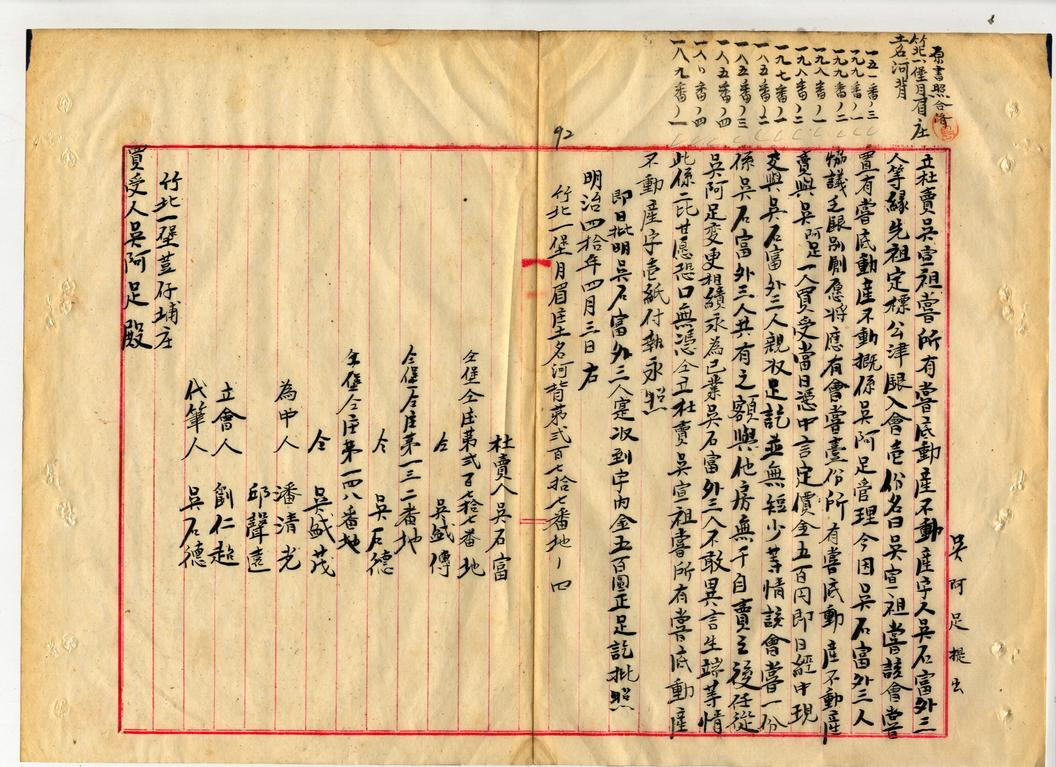 原書照合済
竹北一堡月眉庄
土名河背
一五一番ノ三
一九九番ノ一
一九九番ノ二
一九八番ノ一
一九八番ノ二
一九七番ノ一
一八五番ノ二
一八五番ノ三
一八五番ノ四
一八八ノ四
一八九番ノ一
92
吳阿足提出
立杜賣吳宣祖嘗所有嘗底動產不動產字人吳石富外三
人等緣先祖定標公津銀入會壱份名曰吳宣祖嘗該會嘗
置有嘗底動產不動概係吳阿足管理今因吳石富外三人
協議乏銀別創愿將應有會嘗壹份所有嘗底動產不動產
賣與吳阿足一人買受當日憑中言定價金五百円即日經中現
交與吳石富外三人親收足訖並無短少等情該會嘗一份
係吳石富外三人共有之額與他房無干自賣之後任從
吳阿足變更相續永為己業吳石富外三人不敢異言生端等情
此係二比甘愿恐口無憑仝立杜賣吳宣祖嘗所有嘗底動產
不動產字壱紙付執永照
即日批明吳石富外三人寔收到字內金五百圓正足訖批照
明治四拾年四月三日右
竹北一堡月眉庄土名河背第弍百七拾七番地ノ四
杜賣人吳石富
仝堡仝庄第弍百七拾七番地
仝 吳盛傳
仝堡仝庄第一三二番地
仝 吳石德
仝堡仝庄第一四八番地
仝 吳盛茂
為中人 潘清光
邱聲遠
立會人 劉仁超
代筆人 吳石德
竹北一堡荳仔埔庄
買受人吳阿足殿